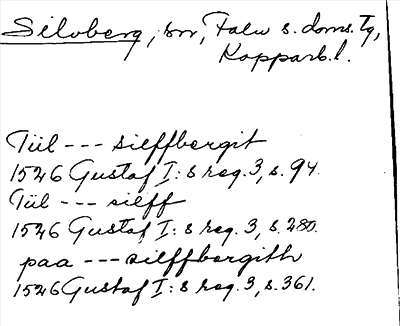 Silvberg, sn, Falu s. doms. tg,
Kopparb. l.
Tiil --- sielffbergit
1526 Gustaf I:s reg. 3, s. 94.
Tiil --- sielff
1526 Gustaf I:s reg. 3, s. 280.
paa --- silffbergith
1526 Gustaf I:s reg. 3, s. 361.